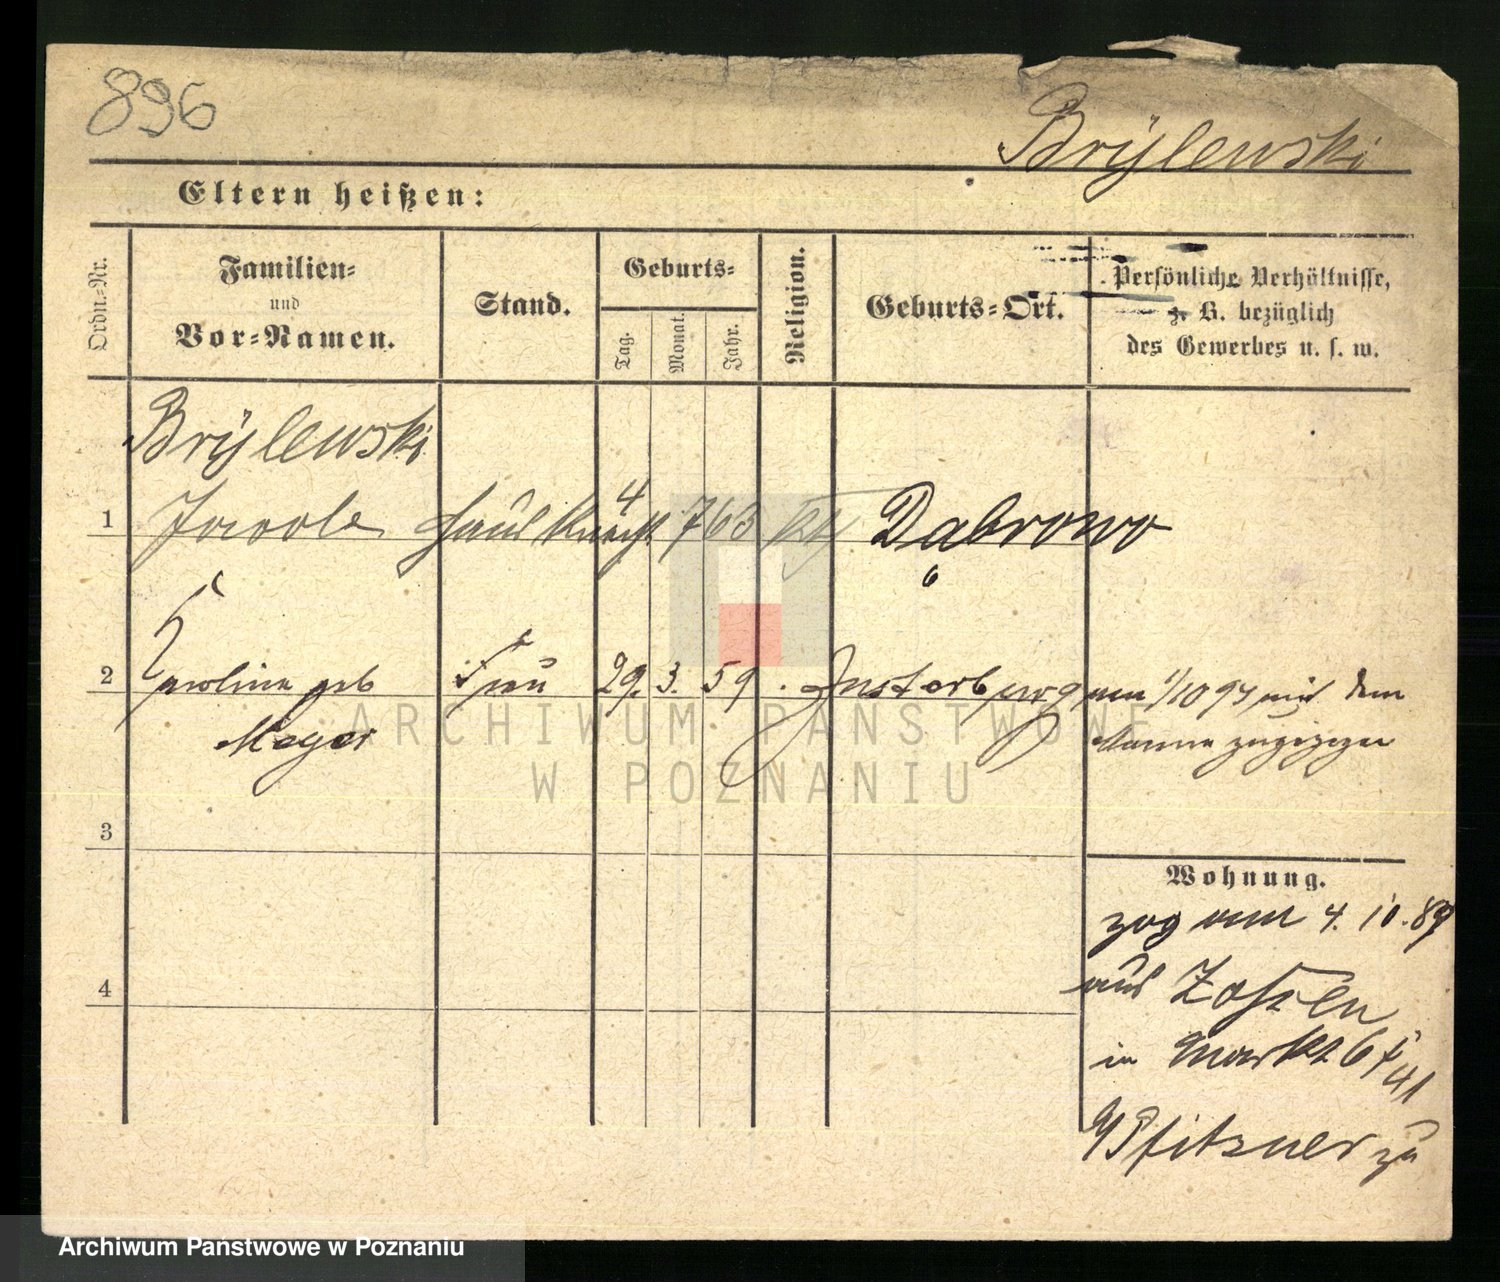 896
Brÿlewski
Eltern heißen:
Ordn.-Nr.
Familien-
und
Vor-Namen.
Stand.
Geburts-
Tag.
Monat.
Jahr.
Religion.
Geburts-Ort.
Persönliche Verhältnisse,
z. B. bezüglich
des Gewerbes u. s. w.
Brÿlewski
1 Jacob Haus Knecht 4 7 63 kth Dąbrowo
2 Karoline geb Frau 29. 3. 59 Insterburg am 1/10 94 mit dem
Meyer Manne zugezogen
3
Wohnung.
zog am 4. 10. 89
4
aus
in Markt 6
Pfitzner zu
ARCHIWUM PAŃSTWOWE
W POZNANIU
Archiwum Państwowe w Poznaniu